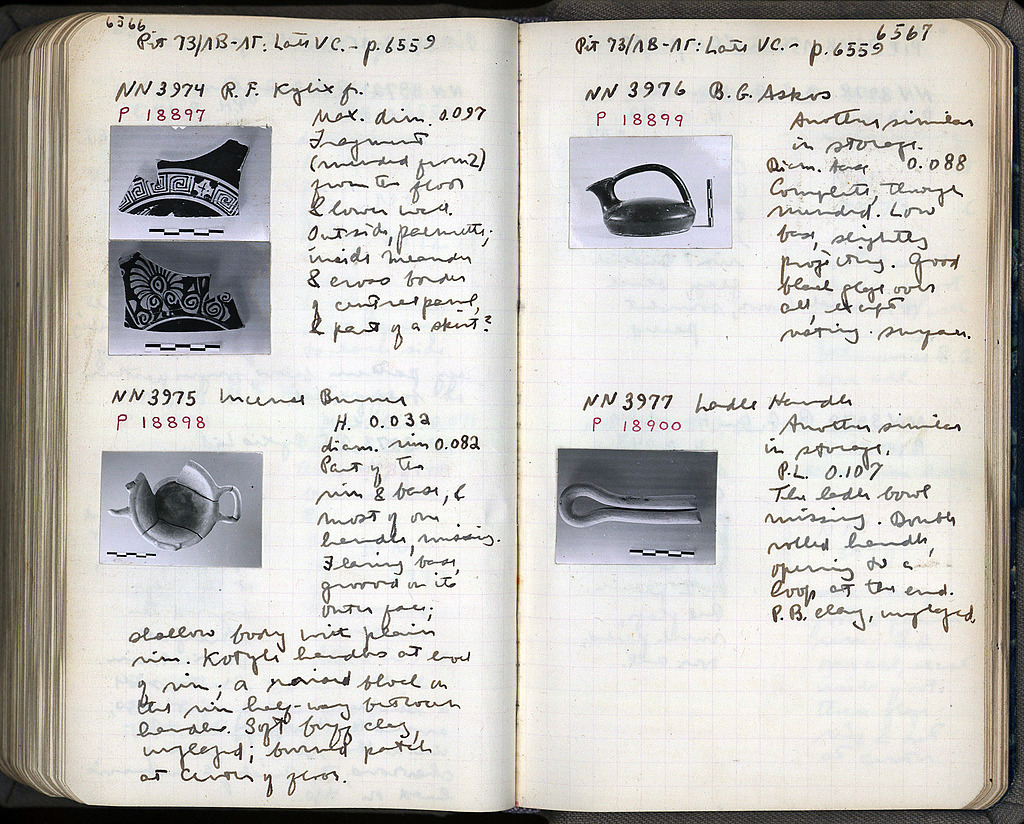 6566
Pit 73/ΛB-ΛΓ: Late V C. - p. 6559
NN 3974 R.F. Kylix fr.
P 18897
Max. dim. 0.097
Fragment
(mended from 2)
from the floor
& lower wall.
Outside, palmettes;
inside meander
& cross border
of central panel,
& part of a skirt?
NN 3975 Incense Burner
P 18898
H. 0.032
diam. rim 0.082
Part of the
rim & base, &
most of one
handle, missing.
Flaring base,
grooved on its
outer face;
shallow body with plain
rim. Kotyle handles at level
of rim; a raised block on
the rim half-way between
handles. Soft buff clay,
unglazed; burned patch
at center of floor.
6567
Pit 73/ΛB-ΛΓ: Late V C. - p. 6559
NN 3976 B.G. Askos
P 18899
Another similar
in storage.
Diam. base 0.088
Complete, though
mended. Low
base, slightly
projecting. Good
black glaze over
all, except
resting surface.
NN 3977 Ladle Handle
P 18900
Another similar
in storage.
P.L. 0.107
The ladle bowl
missing. Double
rolled handle,
opening to a
loop at the end.
P.B. clay, unglazed.